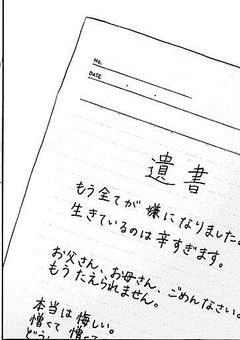 No.
DATE
遺書
もう全てが嫌になりました。
生きているのは辛すぎます。
お父さん、お母さん、ごめんなさい。
もうたえられません。
本当は悔しい。
憎くて憎くて
どう